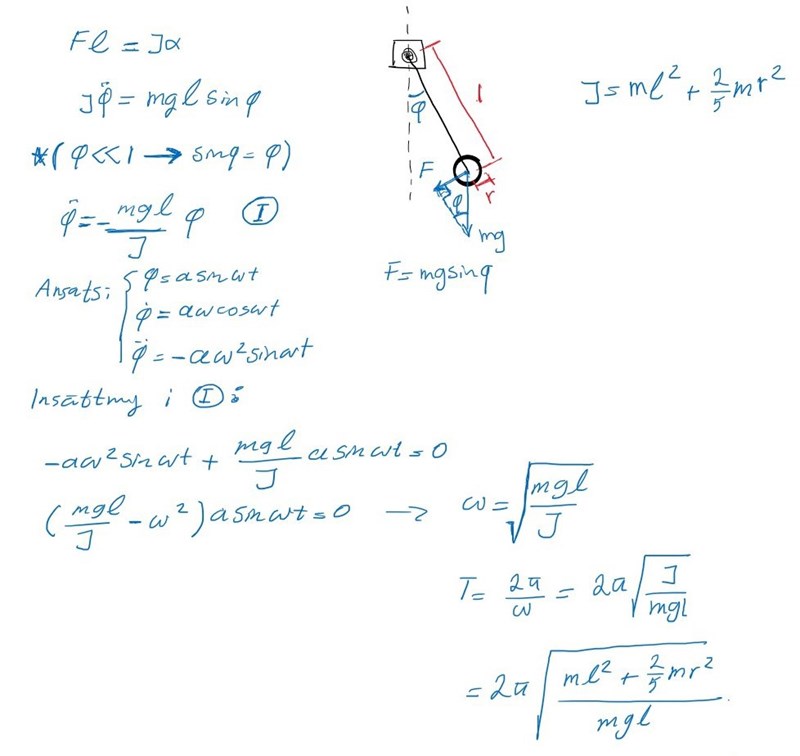 Fl = Jα
Jφ̈ = mgl sinφ
*(φ<<1 → sinφ = φ)
φ̈ = -mgl/J φ (I)
Ansats: { φ = a sinωt
φ̇ = aω cosωt
φ̈ = -aω² sinωt
Insättning i (I):
-aω² sinωt + mgl/J a sinωt = 0
(mgl/J - ω²) a sinωt = 0 → ω = √(mgl/J)
T = 2π/ω = 2π √(J/mgl)
= 2π √((ml² + 2/5 mr²)/mgl)
φ
l
F
r
φ
mg
F = mg sinφ
J = ml² + 2/5 mr²